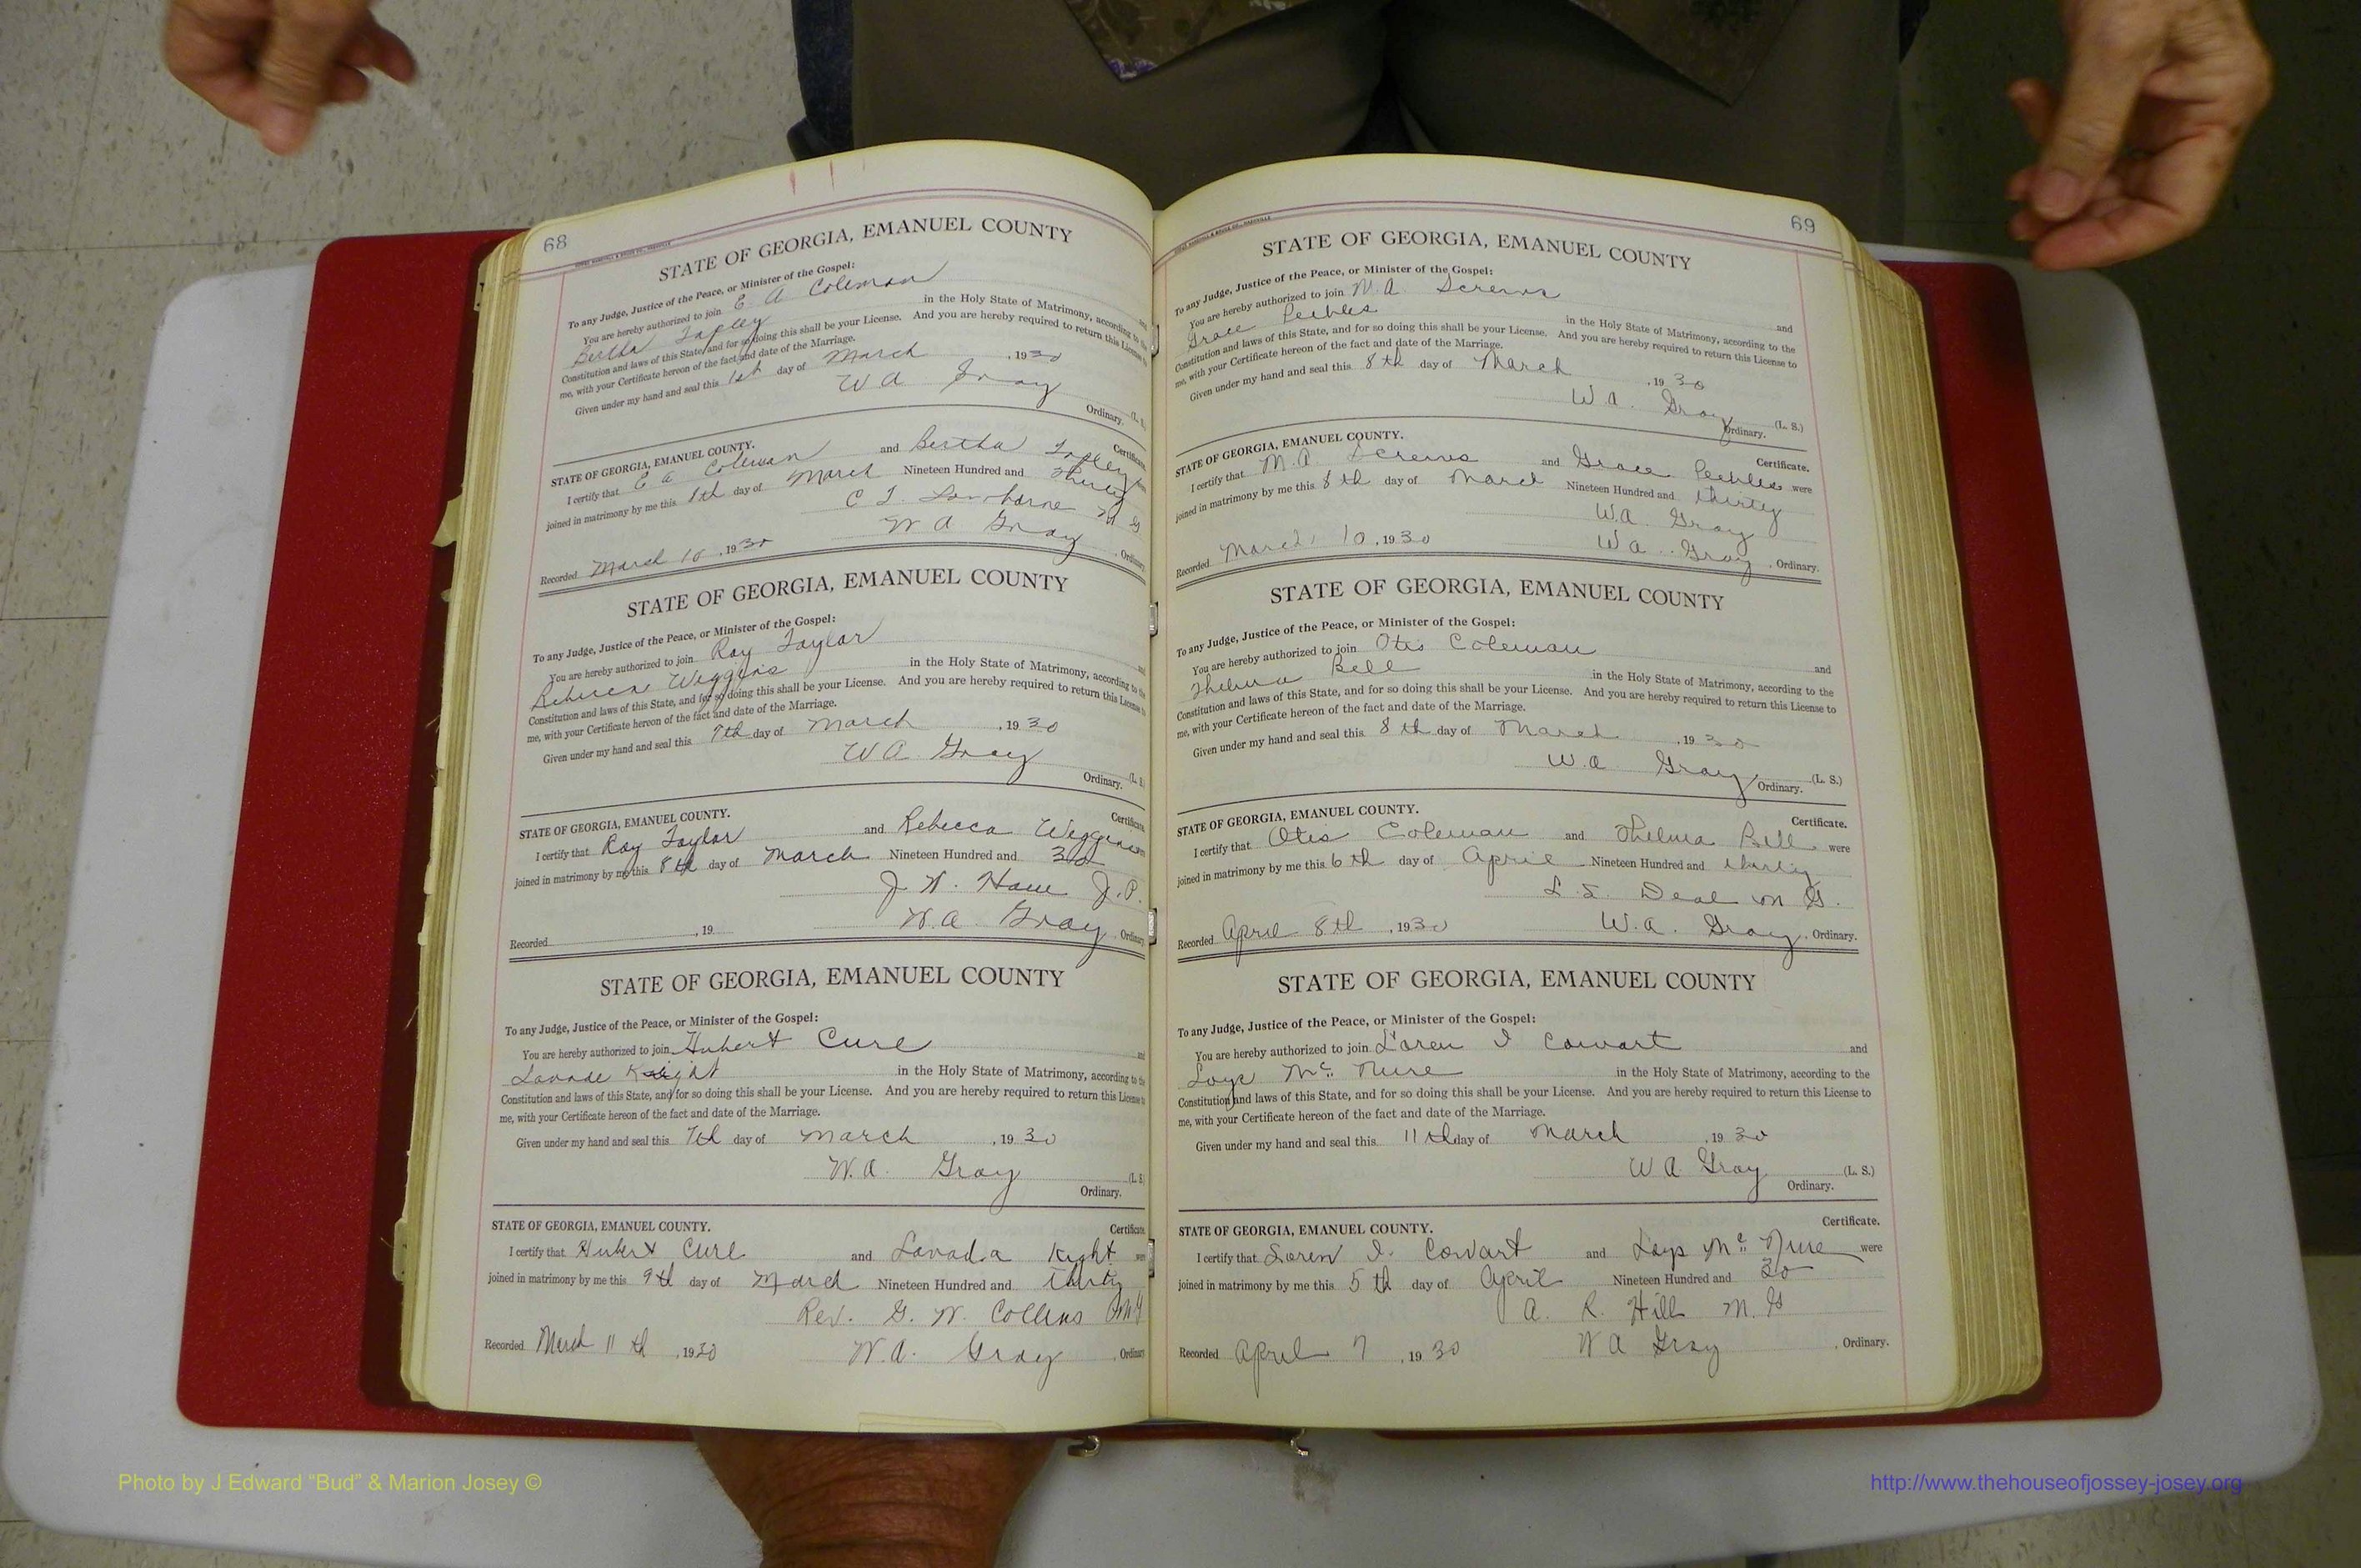 68
STATE OF GEORGIA, EMANUEL COUNTY
To any Judge, Justice of the Peace, or Minister of the Gospel:
You are hereby authorized to join E. A. Coleman and
Bertha Tapley in the Holy State of Matrimony, according to the
Constitution and laws of this State, and for so doing this shall be your License. And you are hereby required to return this License to
me, with your Certificate hereon of the fact and date of the Marriage.
Given under my hand and seal this 1st day of March, 1930
W A Gray (L. S.)
Ordinary.
STATE OF GEORGIA, EMANUEL COUNTY. Certificate.
I certify that E A Coleman and Bertha Tapley were
joined in matrimony by me this day of March Nineteen Hundred and Thirty
C T M G
W A Gray, Ordinary
Recorded March 10, 1930
STATE OF GEORGIA, EMANUEL COUNTY
To any Judge, Justice of the Peace, or Minister of the Gospel:
You are hereby authorized to join Ray Taylor and
Weggins in the Holy State of Matrimony, according to the
Constitution and laws of this State, and for so doing this shall be your License. And you are hereby required to return this License to
me, with your Certificate hereon of the fact and date of the Marriage.
Given under my hand and seal this 7th day of March, 1930
W A Gray (L. S.)
Ordinary.
STATE OF GEORGIA, EMANUEL COUNTY. Certificate.
I certify that Ray Taylor and Rebecca Weggins
joined in matrimony by me this 8th day of March Nineteen Hundred and 30
J. W. J.P.
W.A. Gray, Ordinary
Recorded , 19
STATE OF GEORGIA, EMANUEL COUNTY
To any Judge, Justice of the Peace, or Minister of the Gospel:
You are hereby authorized to join Hubert Curl and
Lavade Kight in the Holy State of Matrimony, according to the
Constitution and laws of this State, and for so doing this shall be your License. And you are hereby required to return this License to
me, with your Certificate hereon of the fact and date of the Marriage.
Given under my hand and seal this 7th day of March, 1930
W.A. Gray (L. S)
Ordinary.
STATE OF GEORGIA, EMANUEL COUNTY. Certificate.
I certify that Hubert Curl and Lavada Kight were
joined in matrimony by me this 9th day of March Nineteen Hundred and thirty
Rev. G. W. Collins
Recorded March 11 th, 1930 W.A. Gray, Ordinary
69
STATE OF GEORGIA, EMANUEL COUNTY
To any Judge, Justice of the Peace, or Minister of the Gospel:
You are hereby authorized to join M. A. Screws and
Grace Peebles in the Holy State of Matrimony, according to the
Constitution and laws of this State, and for so doing this shall be your License. And you are hereby required to return this License to
me, with your Certificate hereon of the fact and date of the Marriage.
Given under my hand and seal this 8th day of March, 1930
W.A. Gray (L. S.)
Ordinary.
STATE OF GEORGIA, EMANUEL COUNTY. Certificate.
I certify that M.A. Screws and Grace Peebles were
joined in matrimony by me this 8th day of March Nineteen Hundred and thirty
W.A. Gray
Recorded March 10, 1930 W A. Gray, Ordinary.
STATE OF GEORGIA, EMANUEL COUNTY
To any Judge, Justice of the Peace, or Minister of the Gospel:
You are hereby authorized to join Otis Coleman and
Thelma Bell in the Holy State of Matrimony, according to the
Constitution and laws of this State, and for so doing this shall be your License. And you are hereby required to return this License to
me, with your Certificate hereon of the fact and date of the Marriage.
Given under my hand and seal this 8th day of March, 1930
W.A. Gray (L. S.)
Ordinary.
STATE OF GEORGIA, EMANUEL COUNTY. Certificate.
I certify that Otis Coleman and Thelma Bell were
joined in matrimony by me this 6th day of April Nineteen Hundred and thirty
L. S. Deal M G.
Recorded April 8th, 1930 W.A. Gray, Ordinary.
STATE OF GEORGIA, EMANUEL COUNTY
To any Judge, Justice of the Peace, or Minister of the Gospel:
You are hereby authorized to join Loren I Cowart and
Loys Mc Nure in the Holy State of Matrimony, according to the
Constitution and laws of this State, and for so doing this shall be your License. And you are hereby required to return this License to
me, with your Certificate hereon of the fact and date of the Marriage.
Given under my hand and seal this 11th day of March, 1930
W A Gray (L. S.)
Ordinary.
STATE OF GEORGIA, EMANUEL COUNTY. Certificate.
I certify that Loren I. Cowart and Loys Mc Nure were
joined in matrimony by me this 5th day of April Nineteen Hundred and 30
A. R. Hill M.G
Recorded April 7, 1930 W A Gray, Ordinary.
Photo by J Edward “Bud” & Marion Josey ©
http://www.thehouseofjossey-josey.org